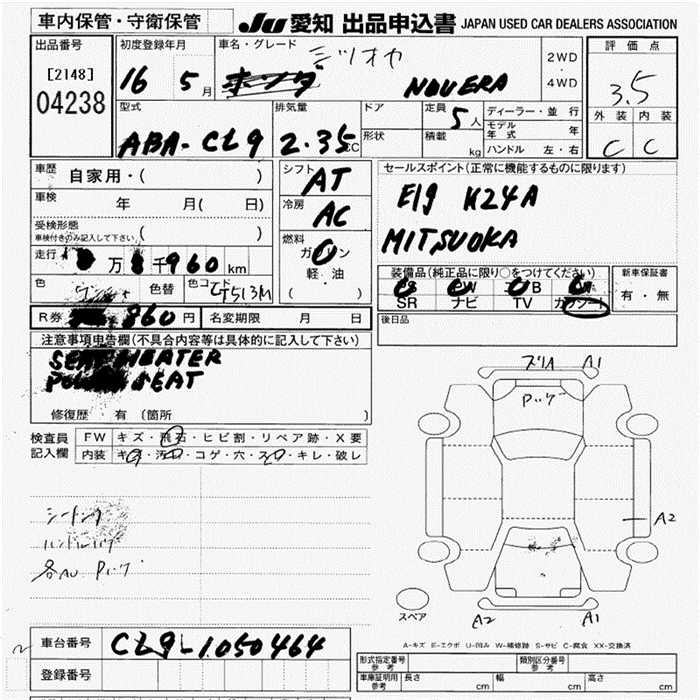 車内保管・守衛保管
JU 愛知 出品申込書 JAPAN USED CAR DEALERS ASSOCIATION
出品番号
[2148]
04238
初度登録年月
16 5月
車名・グレード
ミツオカ
NOUERA
2WD
・
4WD
評価点
3.5
外装 内装
C C
型式
ABA-CL9
排気量
2.35CC
ドア
形状
定員
5人
積載
kg
ディーラー・並行
モデル年式 年
ハンドル 左・右
車歴
自家用・( )
車検
年 月( 日)
受検形態
車検付きのみ記入して下さい ( )
走行
万8千960km
色
色替
色コード
シフト
AT
冷房
AC
燃料
ガソリン
軽・油
( )
セールスポイント(正常に機能するものに限ります)
E19 K24A
MITSUOKA
装備品(純正品に限り○をつけてください)
SR ナビ TV カワシート
新車保証書
有・無
R券 860円
名変期限 月 日
後日品
注意事項申告欄(不具合内容等は具体的に記入して下さい)
SEAT HEATER
POWER SEAT
修復歴 有 (箇所
検査員
記入欄
FW キズ・飛石・ヒビ割・リペア跡・X要
内装 キズ・汚れ・コゲ・穴・スレ・キレ・破レ
A1
A2
A2
A1
スペア
A-キズ E-エクボ U-凹み W-補修跡 S-サビ C-腐食 XX-交換済
車台番号
CL9-1050464
登録番号
形式指定番号
参考
類別区分番号
参考
車庫証明用
参考
長さ cm
幅 cm
高さ cm